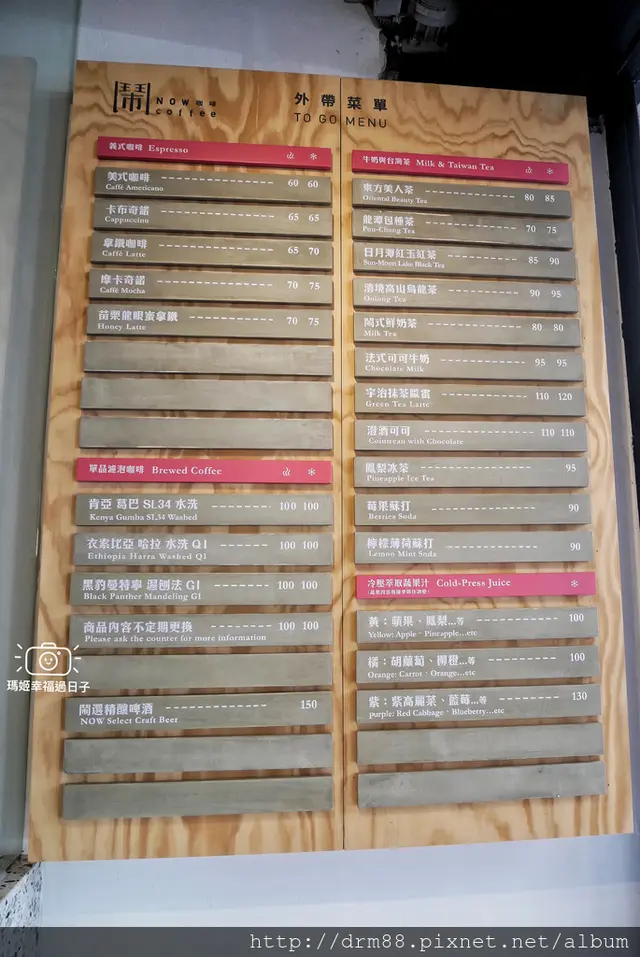 鬧 NOW 咖啡
coffee
外帶菜單
TO GO MENU
義式咖啡 Espresso
美式咖啡 60 60
Caffé Americano
卡布奇諾 65 65
Cappuccino
拿鐵咖啡 65 70
Caffé Latte
摩卡奇諾 70 75
Caffé Mocha
苗栗龍眼蜜拿鐵 70 75
Honey Latte
單品濾泡咖啡 Brewed Coffee
肯亞 葛巴 SL34 水洗 100 100
Kenya Gumba SL34 Washed
衣索比亞 哈拉 水洗 Q1 100 100
Ethiopia Harra Washed Q1
黑豹曼特寧 濕刨法 G1 100 100
Black Panther Mandeling G1
商品內容不定期更換 100 100
Please ask the counter for more information
鬧選精釀啤酒 150
NOW Select Craft Beer
牛奶與台灣茶 Milk & Taiwan Tea
東方美人茶 80 85
Oriental Beauty Tea
龍潭包種茶 70 75
Pou-Chong Tea
日月潭紅玉紅茶 85 90
Sun-Moon Lake Black Tea
清境高山烏龍茶 90 95
Oolong Tea
鬧式鮮奶茶 80 80
Milk Tea
法式可可牛奶 95 95
Chocolate Milk
宇治抹茶歐蕾 110 120
Green Tea Latte
澄酒可可 110 110
Cointreau with Chocolate
鳳梨冰茶 95
Pineapple Ice Tea
莓果蘇打 90
Berries Soda
檸檬薄荷蘇打 90
Lemon Mint Soda
冷壓萃取蔬果汁 Cold-Press Juice
黃：蘋果、鳳梨...等 100
Yellow: Apple、Pineapple...etc
橘：胡蘿蔔、柳橙...等 100
Orange: Carrot、Orange...etc
紫：紫高麗菜、藍莓...等 130
purple: Red Cabbage、Blueberry...etc
瑪姬幸福過日子
http://drm88.pixnet.net/album